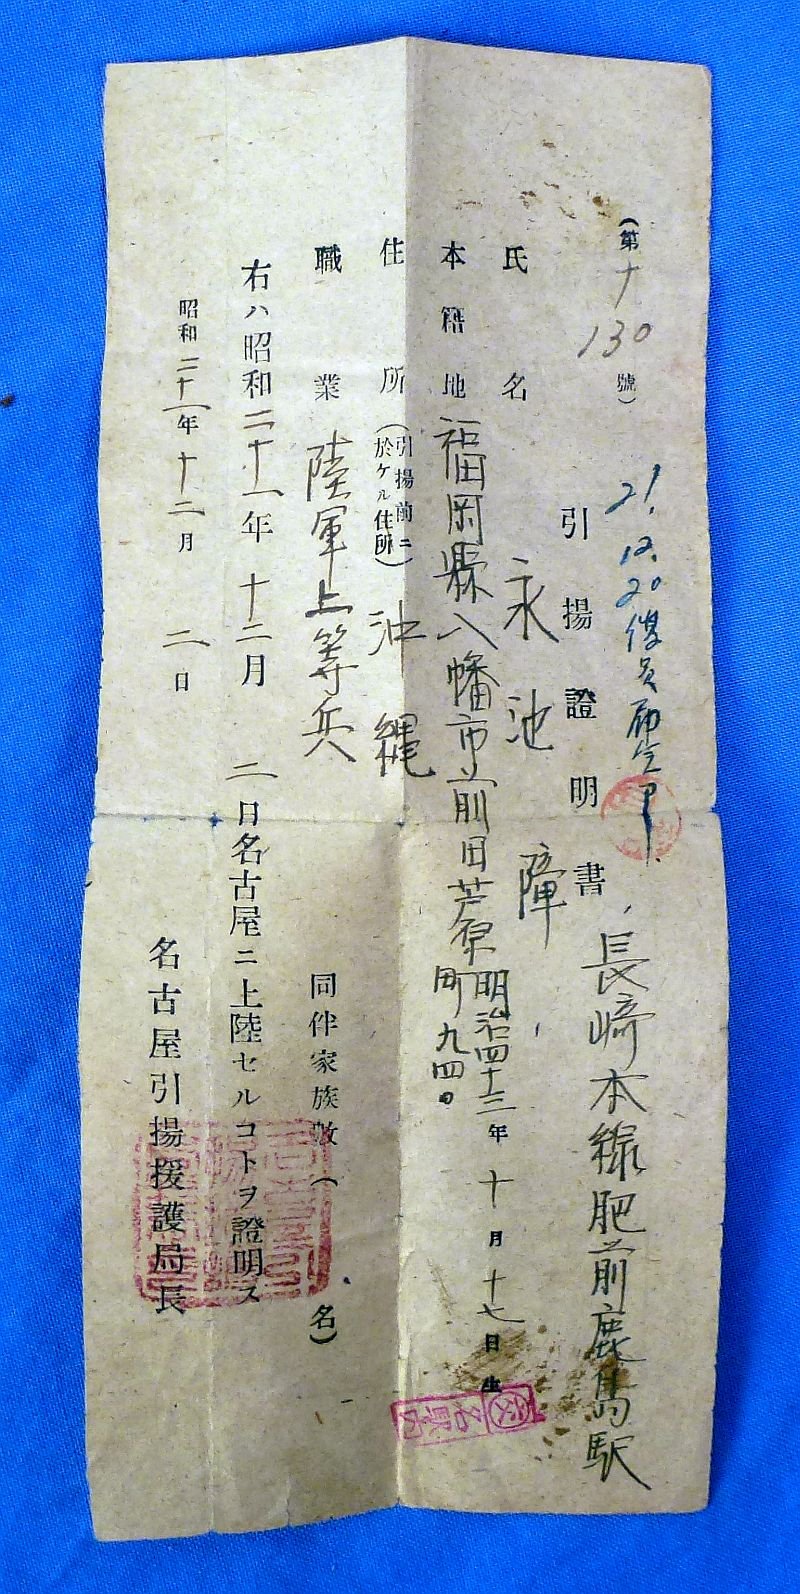 (第十130號)
21.12.20復員
引揚證明書
長崎本線肥前鹿島駅
氏名 永池
明治四十三年十月十七日生
本籍地 福岡縣八幡市前田芦原町九四
住所(引揚前ニ於ケル住所) 沖縄
職業 陸軍上等兵
同伴家族數( 名)
右ハ昭和二十一年十二月二日名古屋ニ上陸セルコトヲ證明ス
昭和二十一年十二月二日
名古屋引揚援護局長